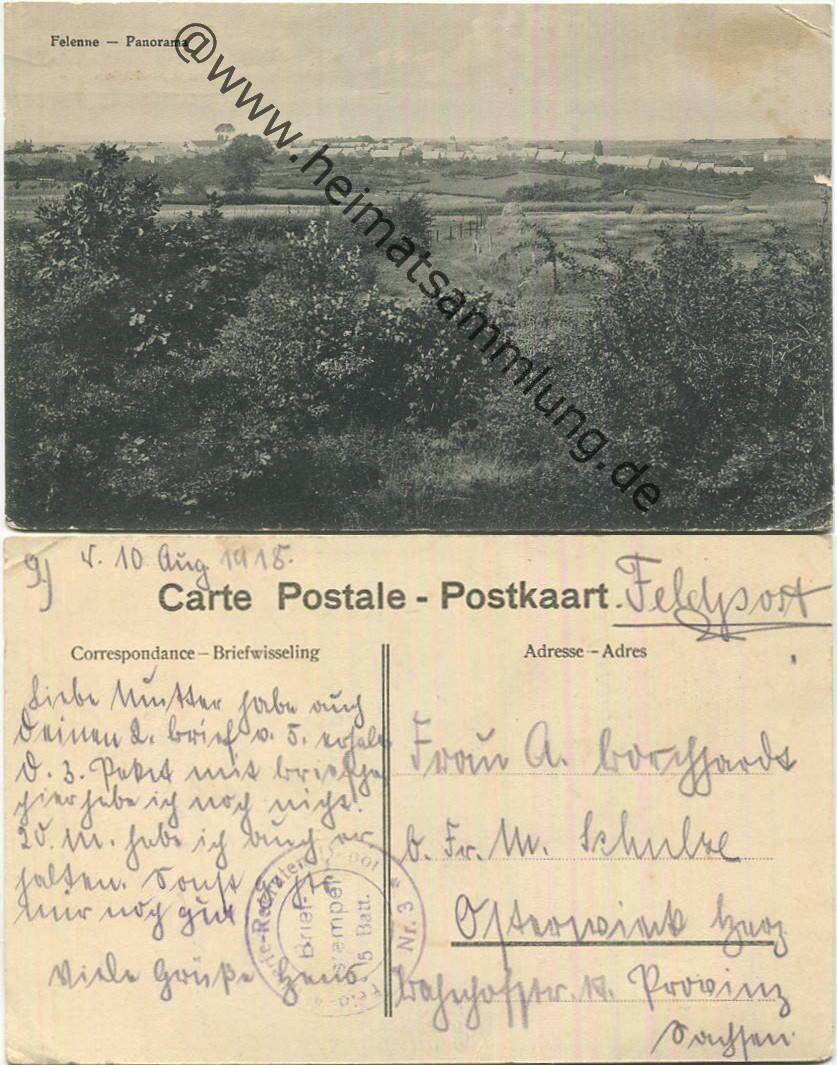 Felenne — Panorama
@www.heimatsammlung.de
9) d. 10 Aug 1918.
Carte Postale - Postkaart. Feldpost
Correspondance – Briefwisseling
Adresse – Adres
Liebe Mutter habe auch
Deinen 2. Brief v. 5. erhalt.
D. 3. Paket mit
hier habe ich noch nicht.
20. M. habe ich auch er
halten. Sonst
mir noch gut
Viele Grüße Hans.
Frau A. Borchhardt
b. Fr. M. Schulze
Osterwieck Harz
Bahnhofstr. 19. Provinz
Sachsen.
Brief-
stempel
5 Batt.
Nr. 3 *